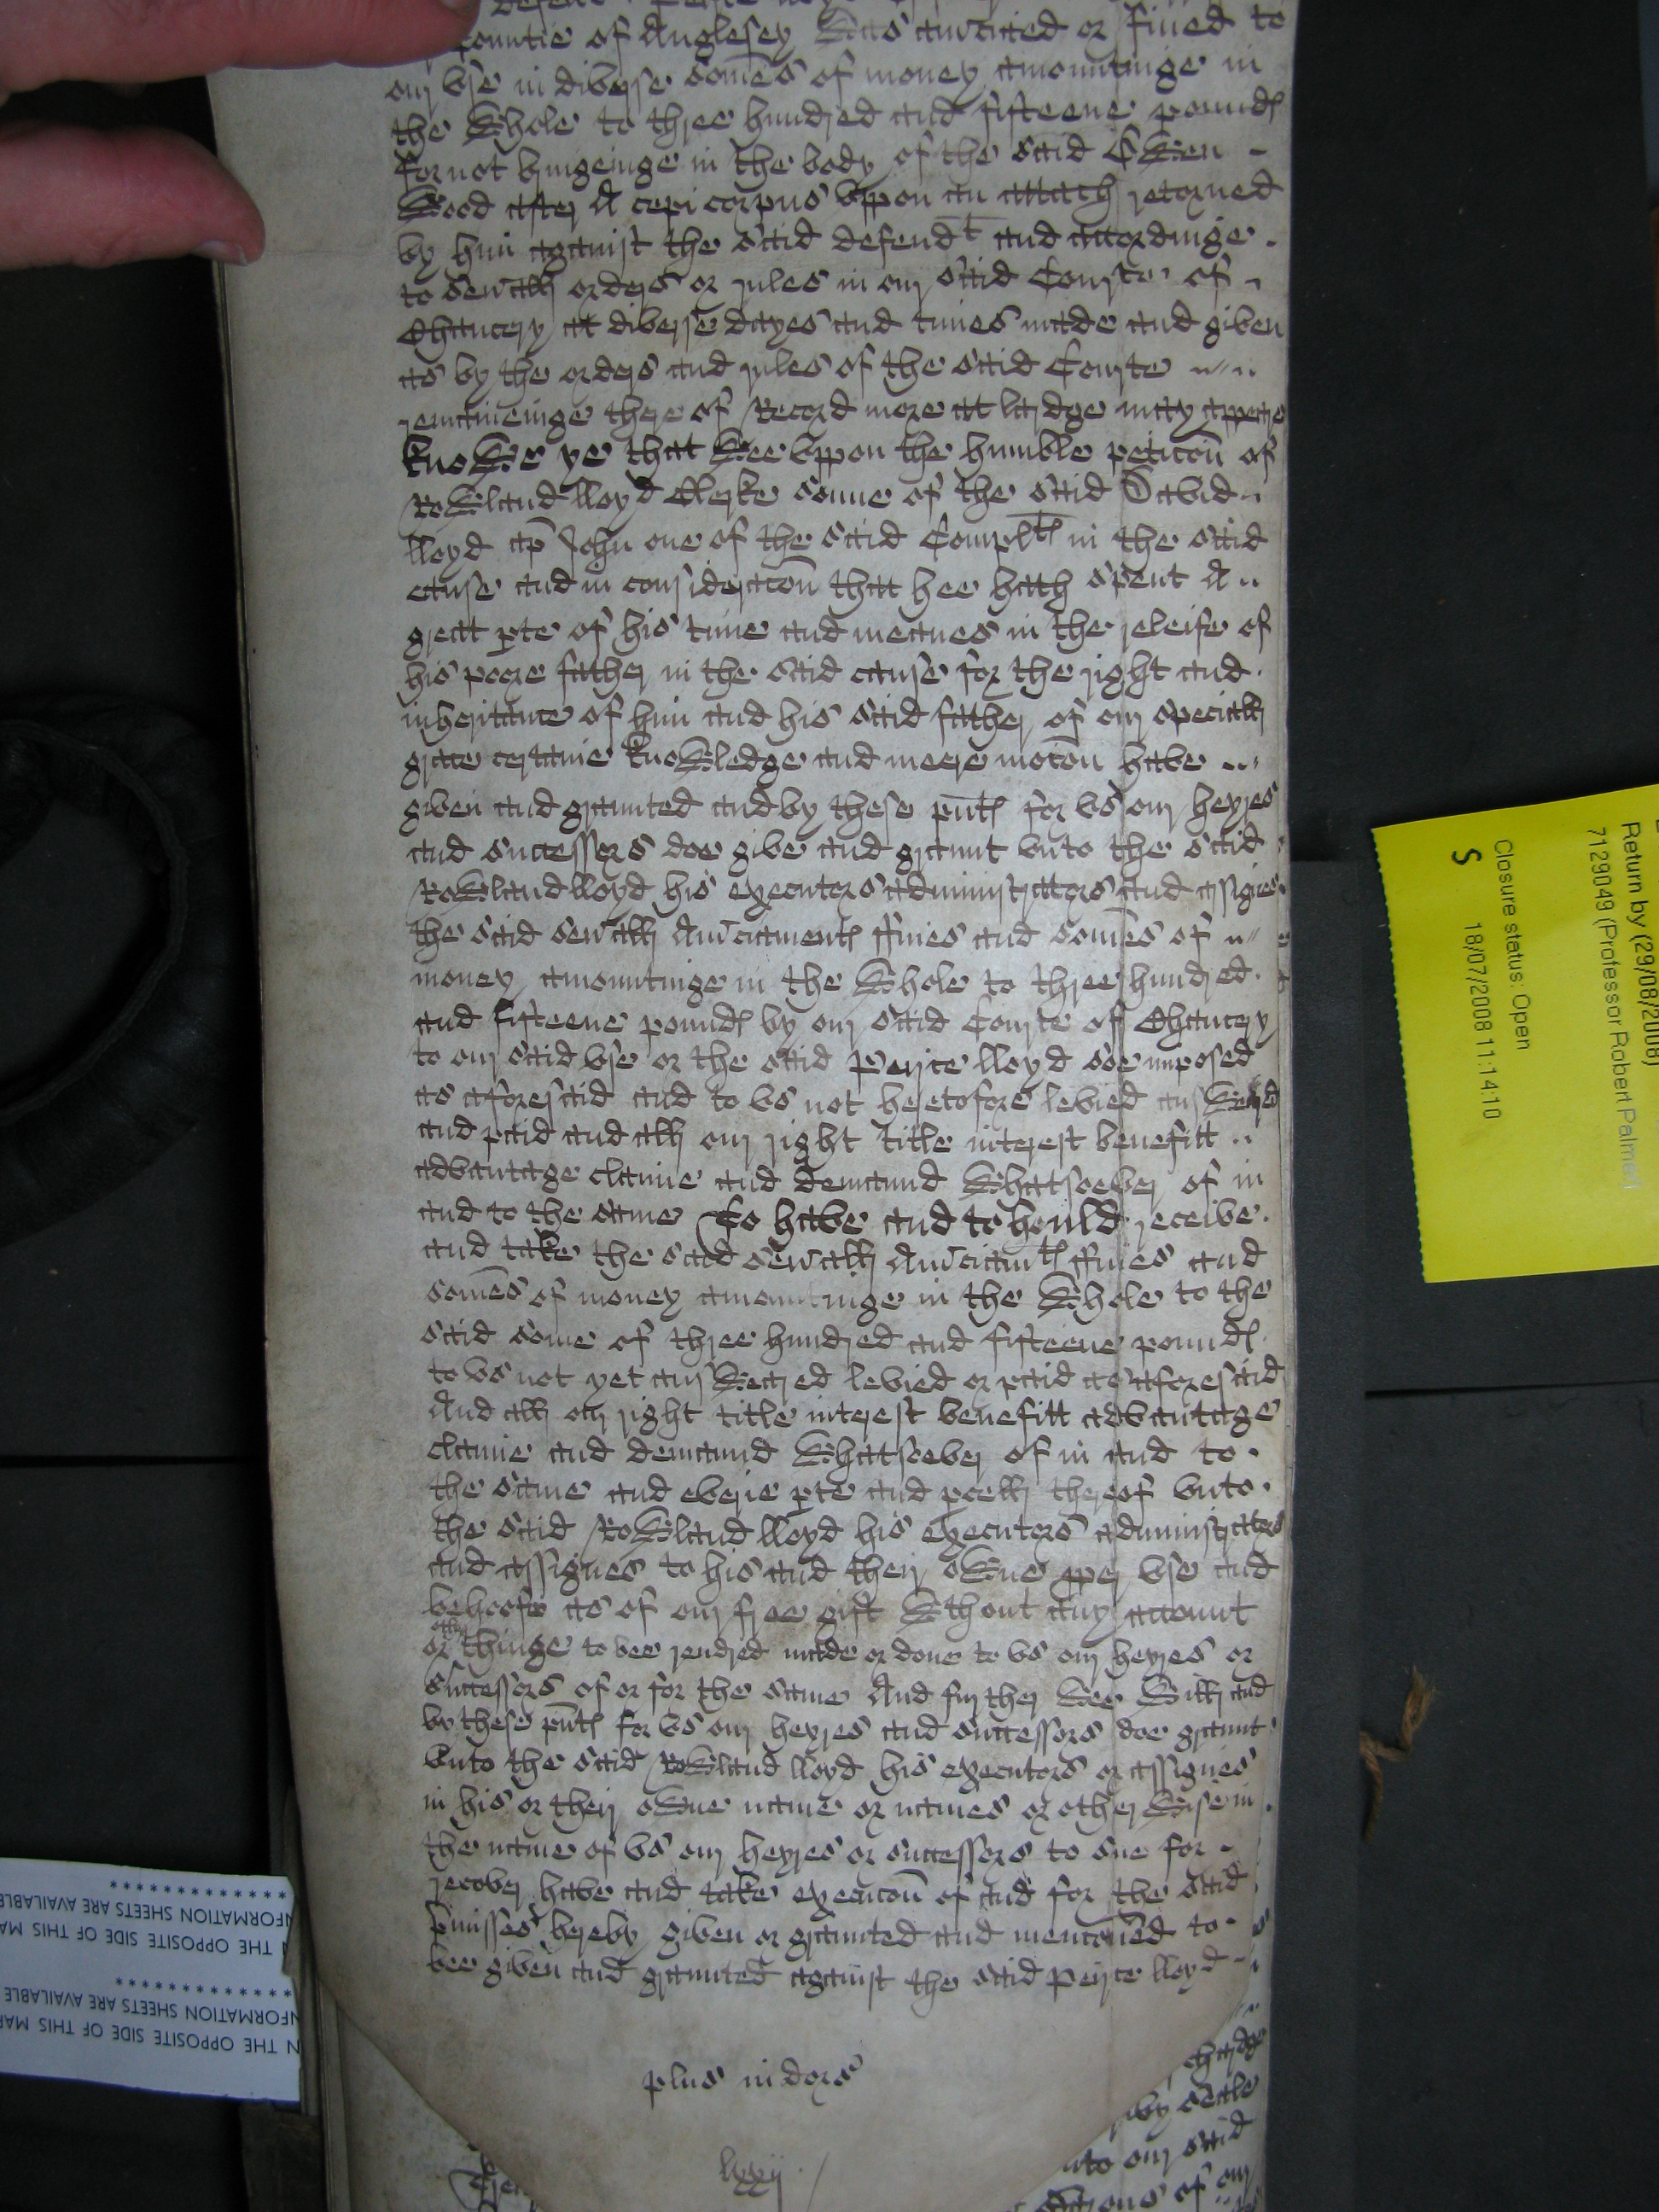 Countie of Anglesey was am̄cied or fined to
our vse in diverse som̄es of money amountinge in
the whole to three hundred and fifteene pound(es)
for not bringeinge in the body of the said Ewen
wood after A cepi corpus vppon an attach retorned
by him against the said defend^t and accordinge
to sev̄all orders or rules in our said Courte of
Chancery at diverse dayes and times made and given
as by the orders and rules of the said Courte
remaineinge there of Record more at lardge may appeare
knowe ye that wee vppon the humble petic̄on of
Rowland lloyd Clerke sonne of the said David
lloyd ap̄ John one of the said Compl^tes in the said
cause and in considerac̄on that hee hath spent A
great pte of his time and meanes in the releife of
his poore father in the said cause for the right and
inheritance of him and his said father of our speciall
grace certaine knowledge and meere moc̄on have
given and graunted and by these pn̄tes for vs our heyres
and successors doe give and graunt vnto the said
Rowland lloyd his executors administrators and assignes
the said sev̄all Am̄ciamentes ffines and som̄es of
money amountinge in the whole to three hundred
and fifteene poundes by our said Courte of Chancery
to our said vse or the said Peirce lloyd soe imposed
as aforesaid and to vs not heretofore levied answered
and paid and all our right title interest benefitt
advantage claime and demaund whatsoever of in
and to the same To have and to hould receive
and take the said sev̄all Am̄ciam^tes ffines and
som̄es of money amountinge in the whole to the
said some of three hundred and fifteene poundes
to vs not yet answeared levied or paid as aforesaid
And all our right title interest benefitt advantage
claime and demaund whatsoever of in and to
the same and everie pte and pcell thereof vnto
the said Rowland lloyd his executors administrators
and assignes to his and their owne pper vse and
behoofe as of our free gift without any account
or other thinge to bee rendred made or done to vs our heyres or
Successors of or for the same And further wee will and
by these pn̄tes for vs our heyres and successors doe graunt
vnto the said Rowland lloyd his executors or assignes
in his or their owne name or names or otherwise in
the name of vs our heyres or successors to sue for
recover have and take execuc̄on of and for the said
p̄misses hereby given or graunted and menc̄oned to
bee given and graunted against the said Peirce lloyd
plus in dors
lxxij
Return by (29/08/2008)
7129049 (Professor Robert Palmer)
Closure status: Open
18/07/2008 11:14:10
S
THE OPPOSITE SIDE OF THIS
INFORMATION SHEETS ARE AVAILABLE
************
THE OPPOSITE SIDE OF THIS
INFORMATION SHEETS ARE AVAILABLE
************